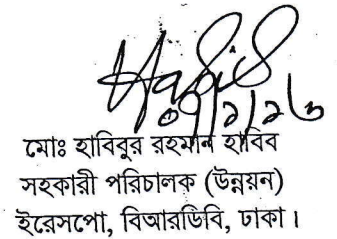 মোঃ হাবিবুর রহমান হাবিব
সহকারী পরিচালক (উন্নয়ন)
ইরেসপো, বিআরডিবি, ঢাকা।